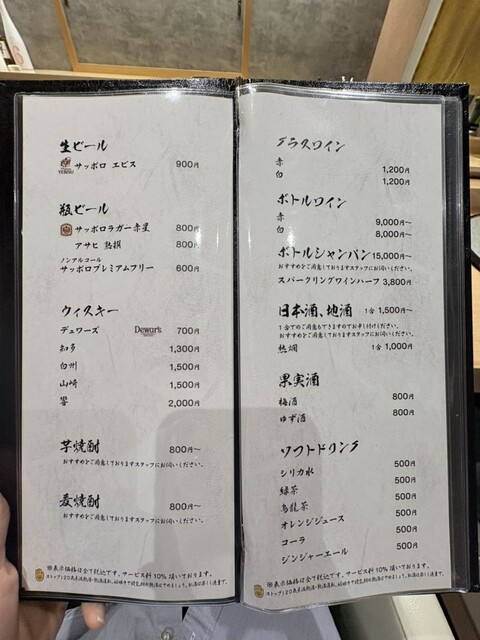 生ビール
YEBISU サッポロ エビス 900円
瓶ビール
サッポロラガー赤星 800円
アサヒ 熟撰 800円
ノンアルコール
サッポロプレミアムフリー 600円
ウィスキー
デュワーズ Dewar's 700円
知多 1,300円
白州 1,500円
山崎 1,500円
響 2,000円
芋焼酎 800円〜
おすすめをご用意しておりますスタッフにお伺いください。
麦焼酎 800円〜
おすすめをご用意しておりますスタッフにお伺いください。
※表示価格は全て税込です。サービス料10%頂いております。
ストップ!20歳未満飲酒・飲酒運転。妊娠中や授乳期の飲酒はやめましょう。お酒は楽しく適度に。
グラスワイン
赤 1,200円
白 1,200円
ボトルワイン
赤 9,000円〜
白 8,000円〜
ボトルシャンパン 15,000円〜
おすすめをご用意しておりますスタッフにお伺いください。
スパークリングワインハーフ 3,800円
日本酒、地酒 1合 1,500円〜
1合でのご用意もできますのでお申し付けください。
おすすめをご用意しておりますスタッフにお伺いください。
熱燗 1合 1,000円
果実酒
梅酒 800円
ゆず酒 800円
ソフトドリンク
シリカ水 500円
緑茶 500円
烏龍茶 500円
オレンジジュース 500円
コーラ 500円
ジンジャーエール 500円
※表示価格は全て税込です。サービス料10%頂いております。
ストップ!20歳未満飲酒・飲酒運転。妊娠中や授乳期の飲酒はやめましょう。お酒は楽しく適度に。